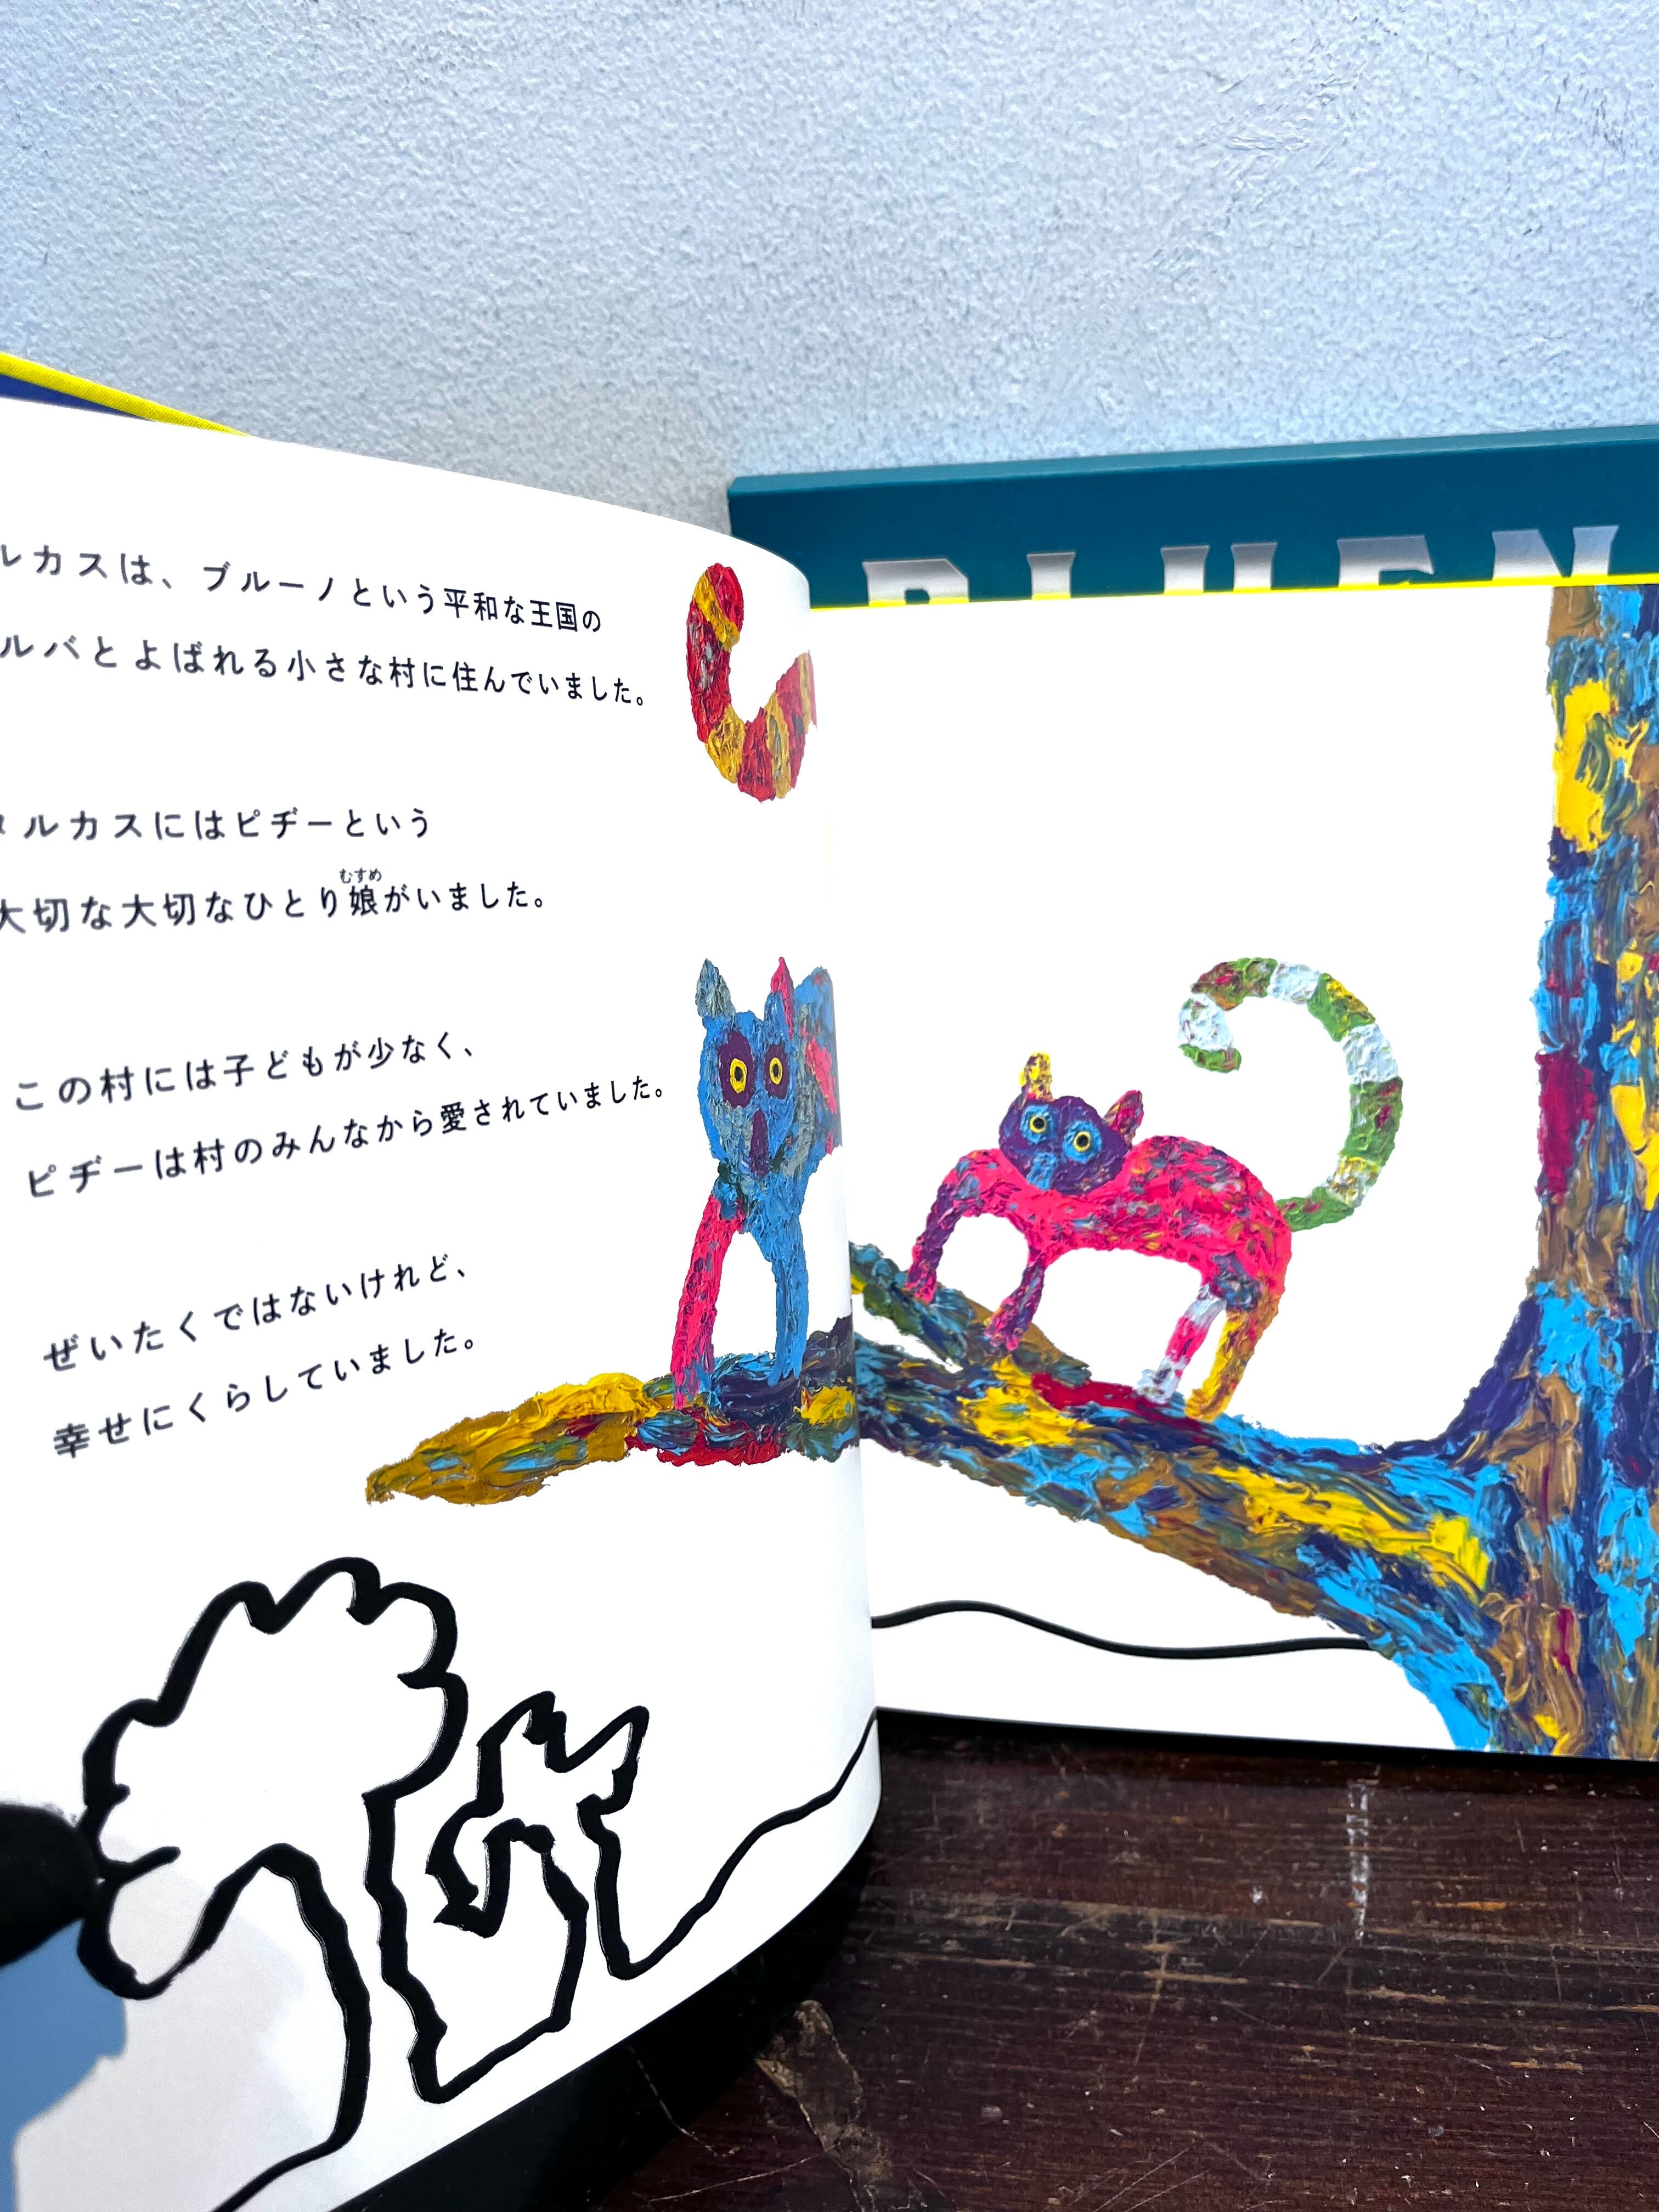 ルカスは、ブルーノという平和な王国の
ルバとよばれる小さな村に住んでいました。
ルカスにはピヂーという
大切な大切なひとり娘がいました。
むすめ
この村には子どもが少なく、
ピヂーは村のみんなから愛されていました。
ぜいたくではないけれど、
幸せにくらしていました。